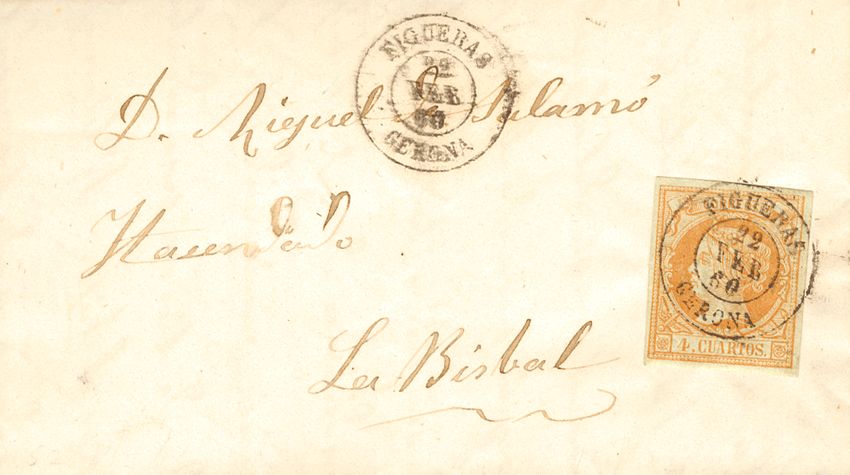 FIGUERAS
22
FEB
60
GERONA
D. Miguel de Salamó
Hacendado
La Bisbal
FIGUERAS
22
FEB
60
GERONA
4 CUARTOS.